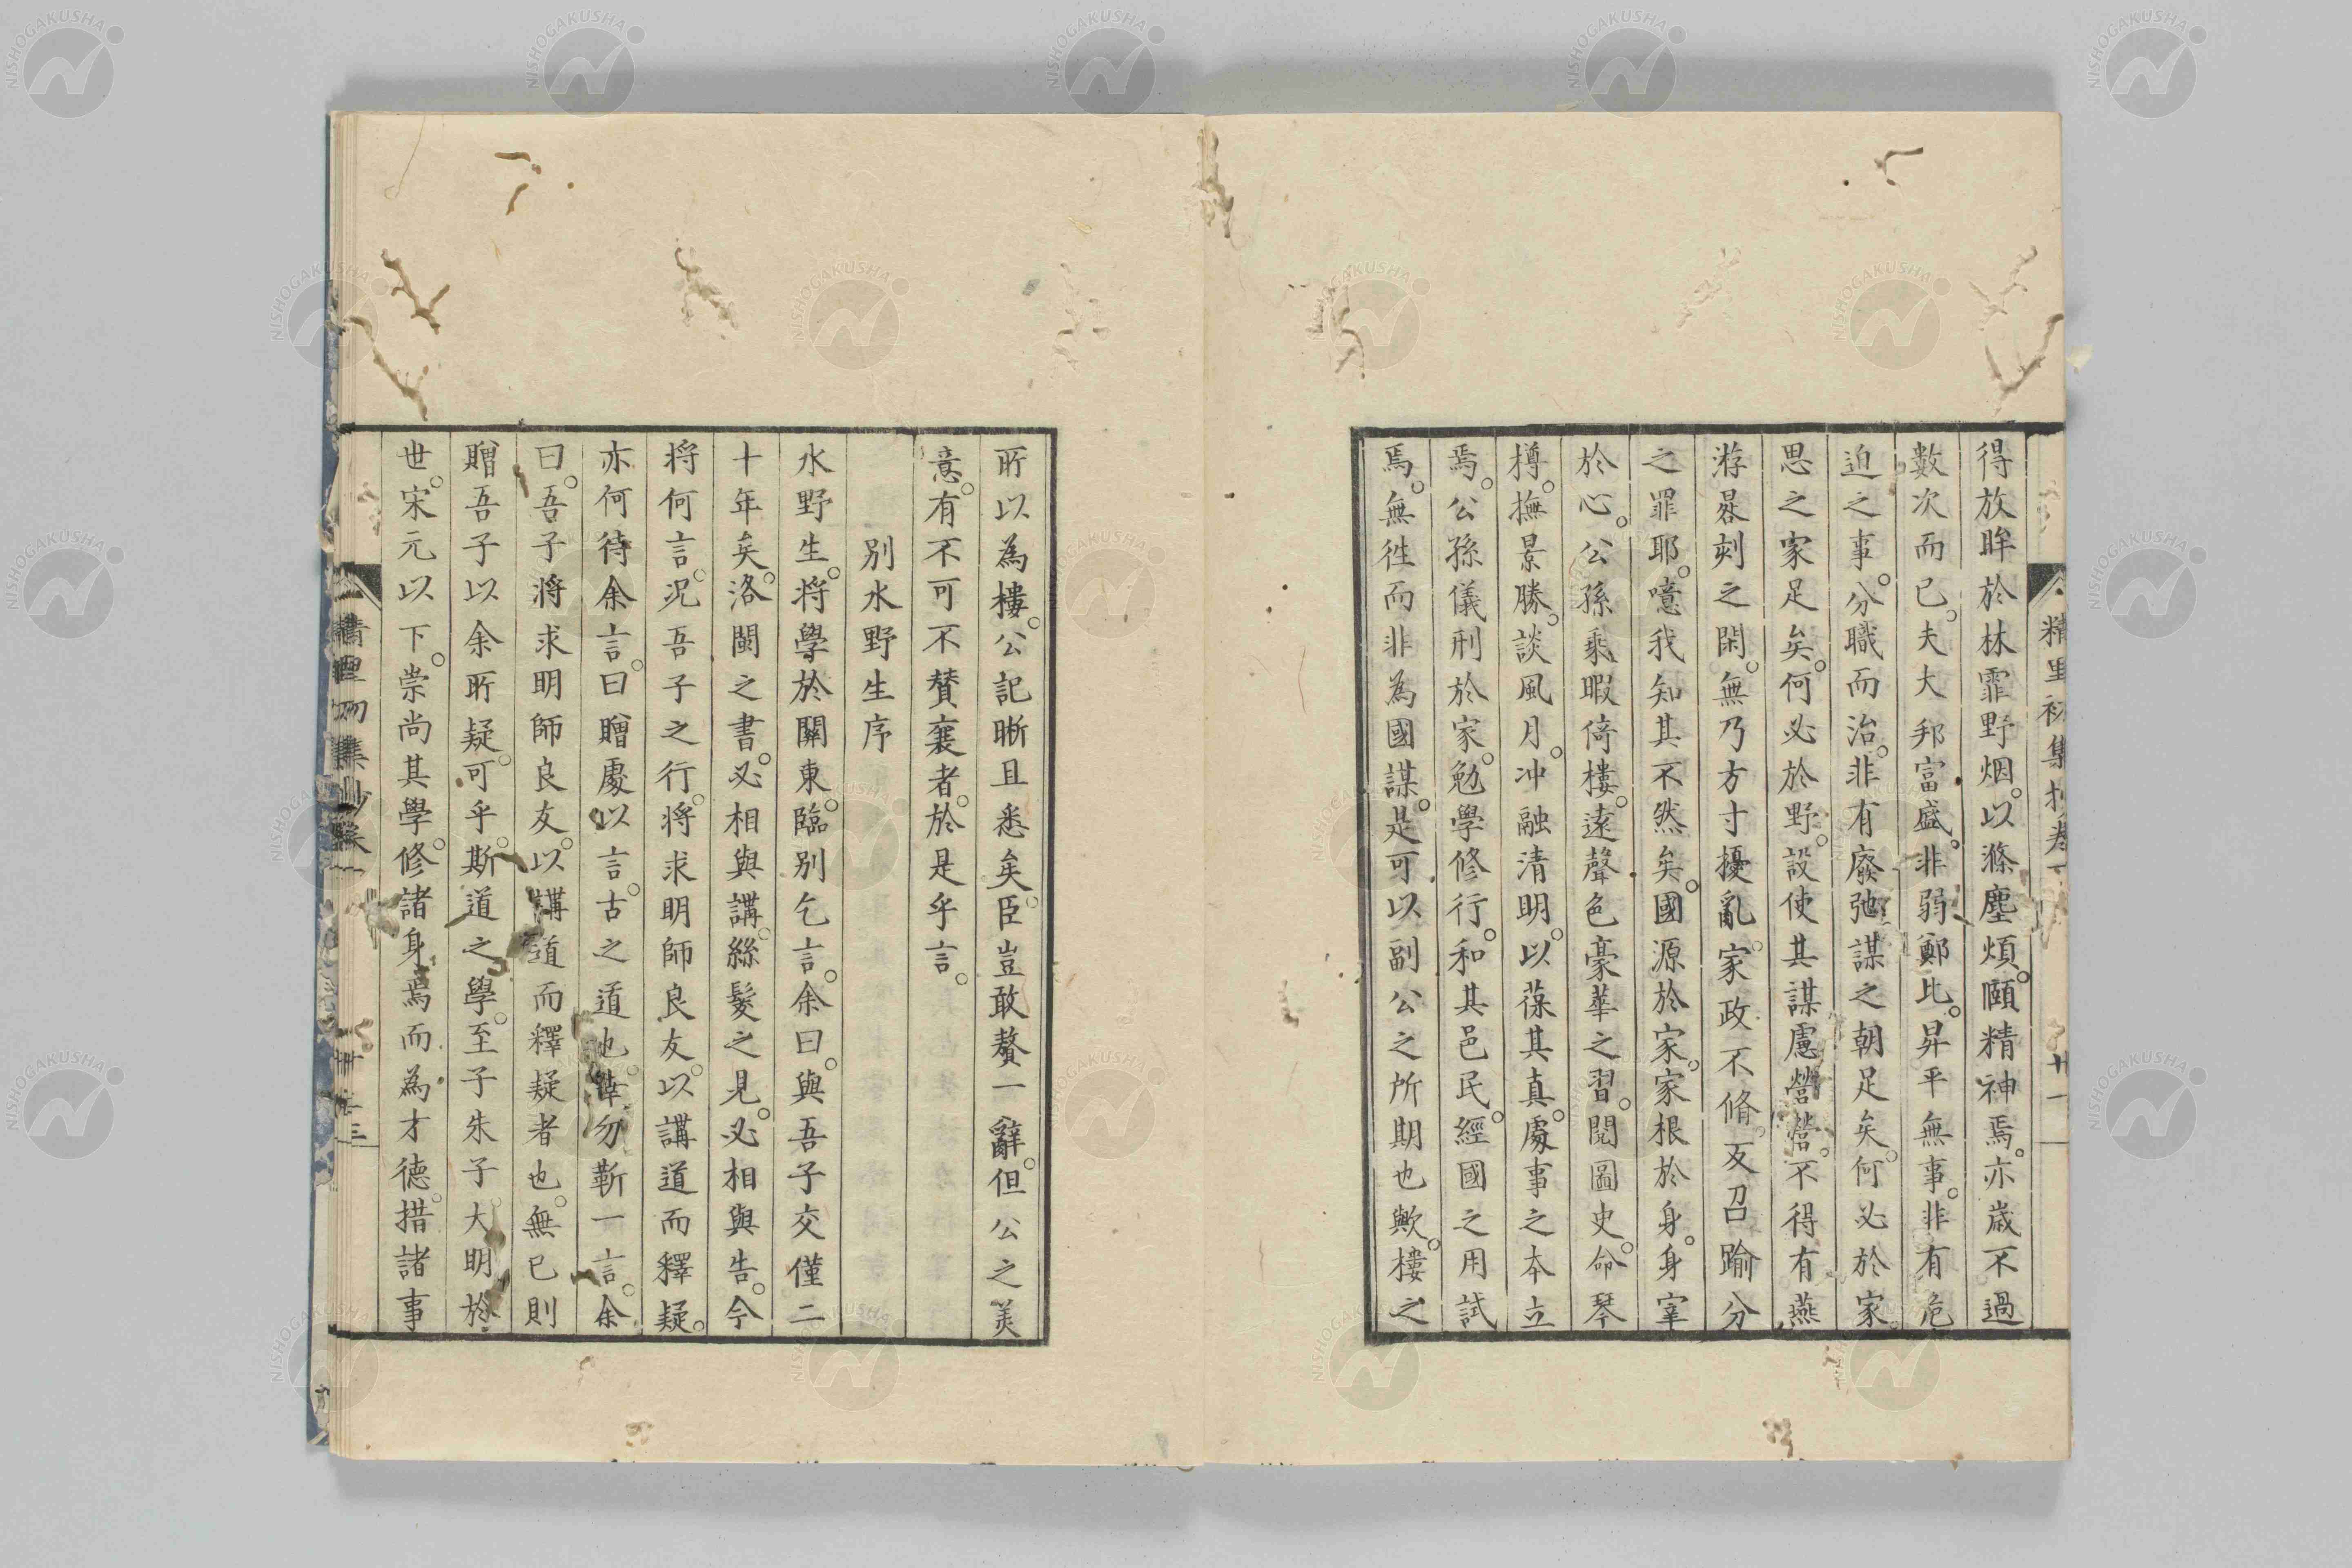 得放眸於林霏野烟。以滌塵煩。頤精神焉。亦歳不過
數次而已。夫大邦富盛。非弱鄭比。昇平無事。非有危
迫之事。分職而治。非有廢弛謀之朝足矣。何必於家。
思之家足矣。何必於野。設使其謀慮營營。不得有燕
游晷刻之閑。無乃方寸擾亂。家政不脩。反召踰分
之罪耶。噫我知其不然矣。國源於家。家根於身。身宰
於心。公孫乘暇倚樓。遠聲色豪華之習。閱圖史。命琴
樽。撫景勝。談風月。冲融清明。以葆其真。處事之本立
焉。公孫儀刑於家。勉學修行。和其邑民。經國之用試
焉。無徃而非為國謀。是可以副公之所期也歟。樓之
所以為樓。公記晰且悉矣。臣豈敢贅一辭。但公之美
意。有不可不賛襄者。於是乎言。
別水野生序
水野生。將學於關東。臨別乞言。余曰。與吾子交僅二
十年矣。洛閩之書。必相與講。絲髮之見。必相與告。今
將何言。况吾子之行。將求明師良友。以講道而釋疑。
亦何待余言。曰贈處以言。古之道也。幸勿靳一言。余
曰。吾子將求明師良友。以講道而釋疑者也。無已則
贈吾子以余所疑。可乎。斯道之學。至子朱子。大明於
世。宋元以下。崇尚其學。修諸身焉而為才德。措諸事
精里初集抄卷一
NISHOGAKUSHA